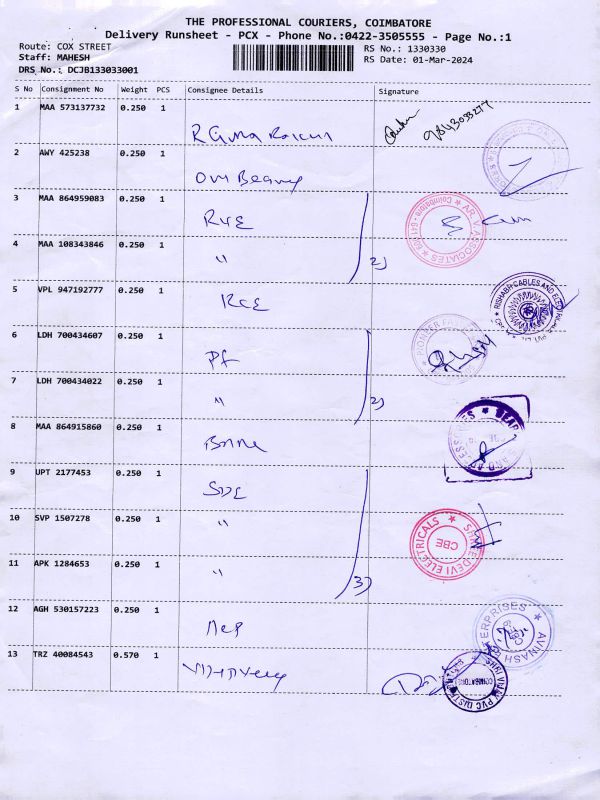 THE PROFESSIONAL COURIERS, COIMBATORE
Delivery Runsheet - PCX - Phone No.:0422-3505555 - Page No.:1
Route: COX STREET RS No.: 1330330
Staff: MAHESH RS Date: 01-Mar-2024
DRS No.: DCJB133033001
S No Consignment No Weight PCS Consignee Details Signature
1 MAA 573137732 0.250 1
9843033277
2 AWY 425238 0.250 1
3 MAA 864959083 0.250 1
AR.V ASSOCIATES ★ Coimbatore - 641
4 MAA 108343846 0.250 1
" 2)
5 VPL 947192777 0.250 1
RCE
RISHABH CABLES AND
6 LDH 700434607 0.250 1
PF
PIONEER
7 LDH 700434022 0.250 1
" 2)
8 MAA 864915860 0.250 1
9 UPT 2177453 0.250 1
SDE
10 SVP 1507278 0.250 1
"
SHREE DEVI ELECTRICALS ★
CBE
11 APK 1284653 0.250 1
" 3)
12 AGH 530157223 0.250 1
AVINASH ENTERPRISES ★
13 TRZ 40084543 0.570 1
SHRI VIJAY PVC
COIMBATORE